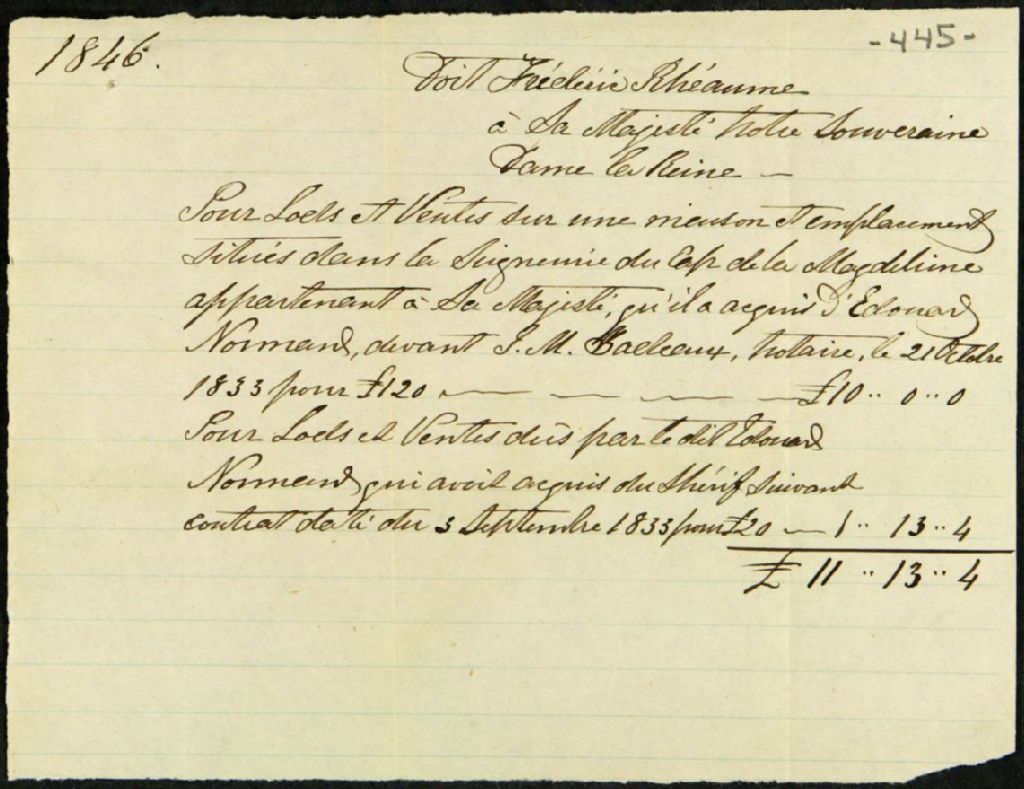 1846.
-445-
Doit Frédéric Rhéaume
à Sa Majesté Notre Souveraine
Dame la Reine —
Pour Lods et Ventes sur une maison et emplacement
situés dans la Seigneurie du Cap de la Magdeleine
appartenant à Sa Majesté, qu'il a acquis d'Edouard
Normand, devant J. M. Badeaux, Notaire, le 21 Octobre
1833 pour £120 — — — — £10 .. 0 .. 0
Pour Lods et Ventes dûs par le dit Edouard
Normand, qui avoit acquis du Shérif suivant
contrat daté du 3 Septembre 1833 pour £20 — 1 .. 13 .. 4
£ 11 .. 13 .. 4